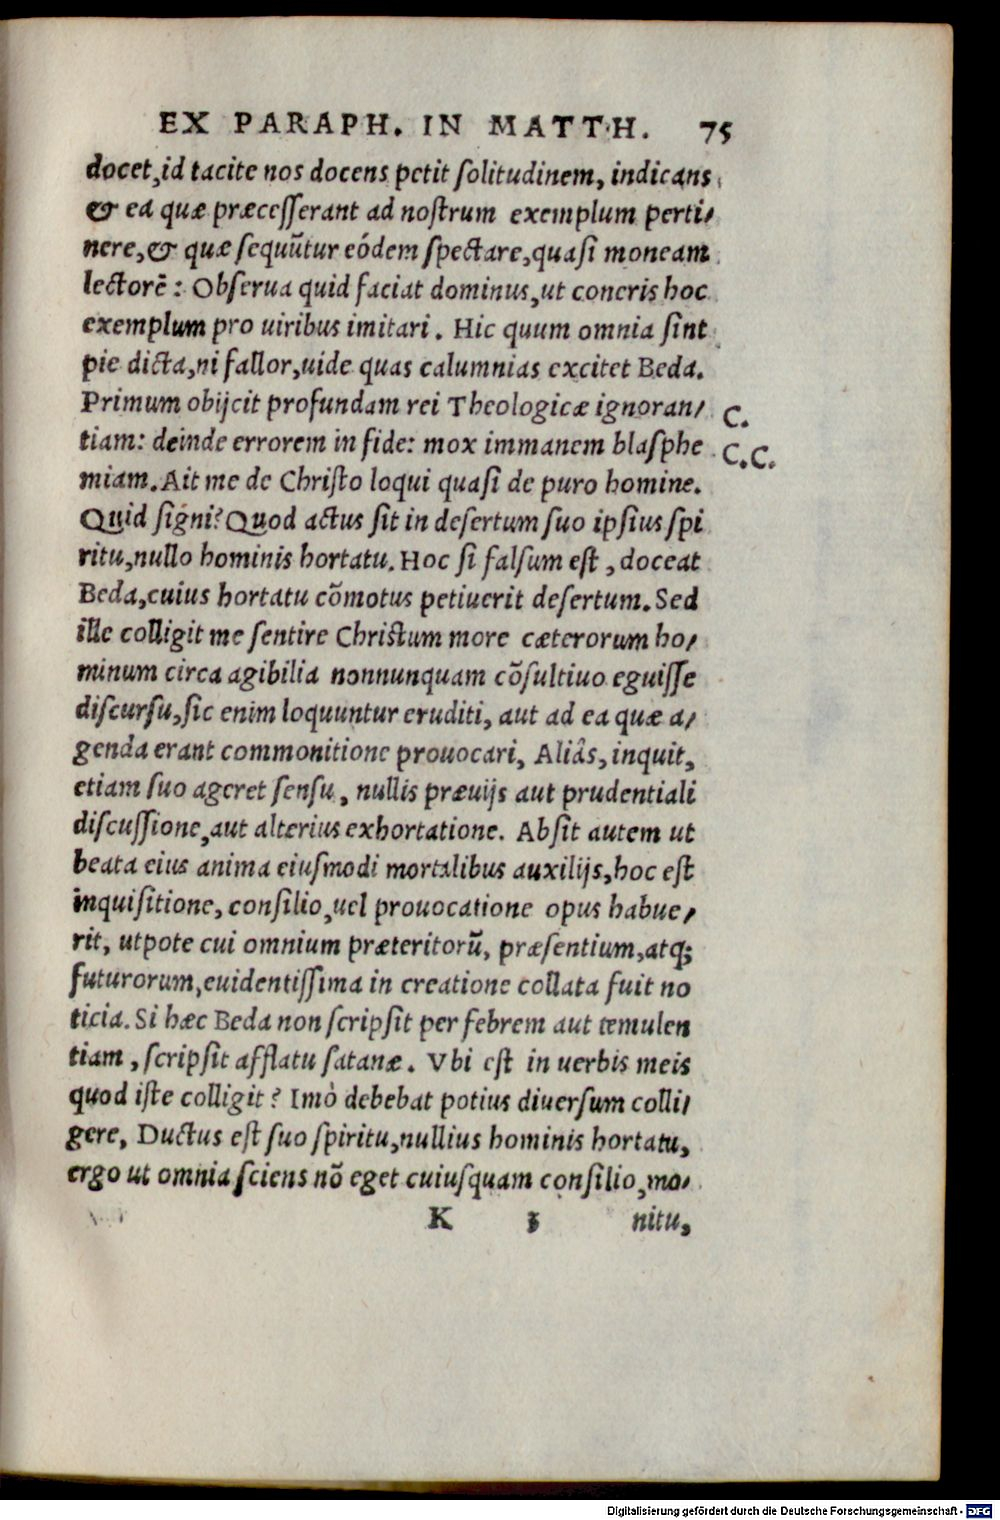 EX PARAPH. IN MATTH. 75
docet,id tacite nos docens petit solitudinem, indicans
& ea quæ præcesserant ad nostrum exemplum perti/
nere,& quæ sequūtur eódem spectare,quasi moneam
lectorē: Obserua quid faciat dominus,ut coneris hoc
exemplum pro uiribus imitari. Hic quum omnia sint
pie dicta,ni fallor,uide quas calumnias excitet Beda.
Primum obijcit profundam rei Theologicæ ignoran/ C.
tiam: deinde errorem in fide: mox immanem blasphe C.C.
miam. Ait me de Christo loqui quasi de puro homine.
Quid signi? Quod actus sit in desertum suo ipsius spi
ritu,nullo hominis hortatu. Hoc si falsum est, doceat
Beda,cuius hortatu cōmotus petiuerit desertum. Sed
ille colligit me sentire Christum more cæterorum ho/
minum circa agibilia nonnunquam cōsultiuo eguisse
discursu,sic enim loquuntur eruditi, aut ad ea quæ a/
genda erant commonitione prouocari, Aliâs, inquit,
etiam suo ageret sensu, nullis præuijs aut prudentiali
discussione,aut alterius exhortatione. Absit autem ut
beata eius anima eiusmodi mortalibus auxilijs,hoc est
inquisitione, consilio,uel prouocatione opus habue/
rit, utpote cui omnium præteritorū, præsentium,atq;
futurorum,euidentissima in creatione collata fuit no
ticia. Si hæc Beda non scripsit per febrem aut temulen
tiam, scripsit afflatu satanæ. Vbi est in uerbis meis
quod iste colligit? Imò debebat potius diuersum colli/
gere, Ductus est suo spiritu,nullius hominis hortatu,
ergo ut omnia sciens nō eget cuiusquam consilio,mo/
K 3 nitu,
Digitalisierung gefördert durch die Deutsche Forschungsgemeinschaft - DFG